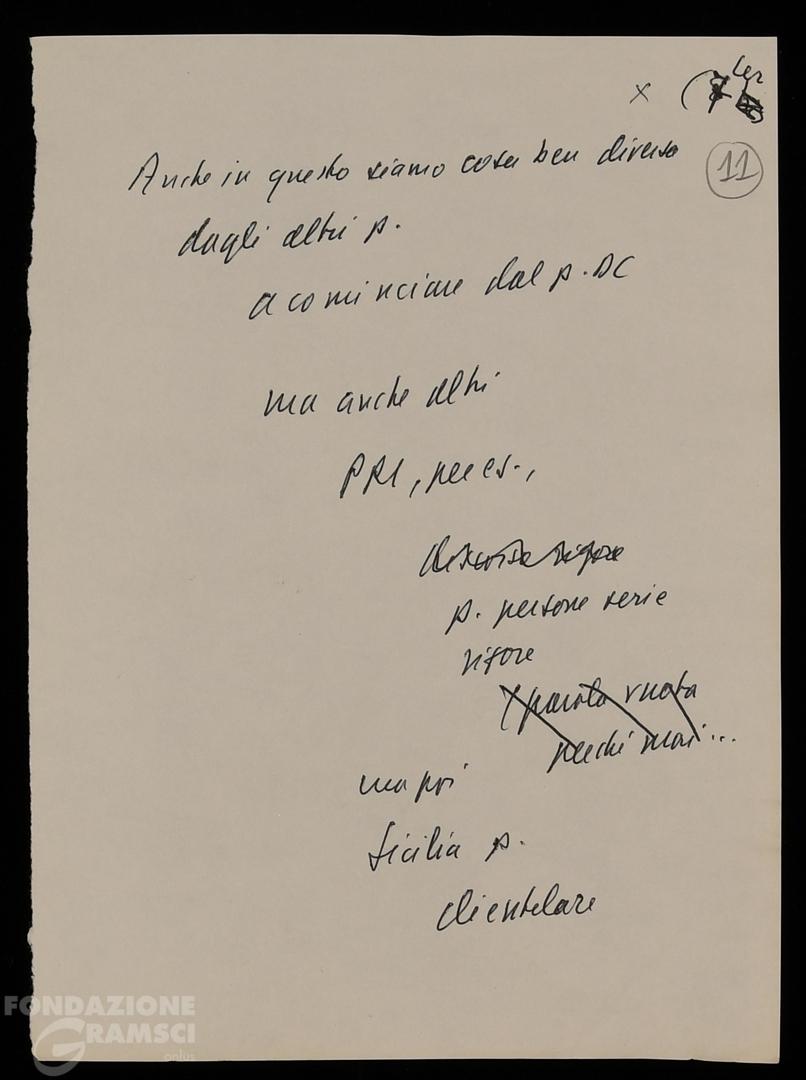 x (7 ter
11
Anche in questo siamo cosa ben diversa
dagli altri p.
a cominciare dal p. DC
ma anche altri
PRI, per es.,
p. persone serie
rigore
(parola vuota
perché mai...
ma poi
Sicilia p.
clientelare
FONDAZIONE
GRAMSCI
onlus